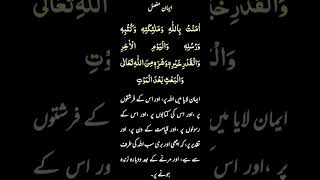 ایمان مفصل
اٰمَنْتُ بِاللّٰهِ وَمَلٰئِكَتِهٖ وَكُتُبِهٖ
وَرُسُلِهٖ وَالْيَوْمِ الْاٰخِرِ
وَالْقَدْرِ خَيْرِهٖ وَشَرِّهٖ مِنَ اللّٰهِ تَعَالٰى
وَالْبَعْثِ بَعْدَ الْمَوْتِ
ایمان لایا میں اللہ پر، اور اس کے فرشتوں
پر، اور اس کی کتابوں پر، اور اس کے
رسولوں پر، اور قیامت کے دن پر، اور
تقدیر پر، کہ اچھی اور بری سب اللہ کی طرف
سے ہے، اور مرنے کے بعد دوبارہ زندہ
ہونے پر۔